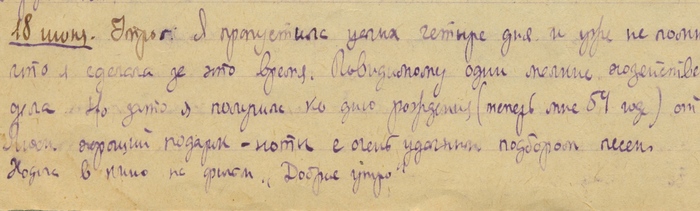 18 июня. Утро. Я пропустила целых четыре дня и уже не помню
что я сделала за это время. Повидимому одни мелкие хозяйстве
дела. Но зато я получила ко дню рождения (теперь мне 54 год) от
хороший подарок - ноты с очень удачным подбором песен.
Ходила в кино на фильм „Доброе утро"